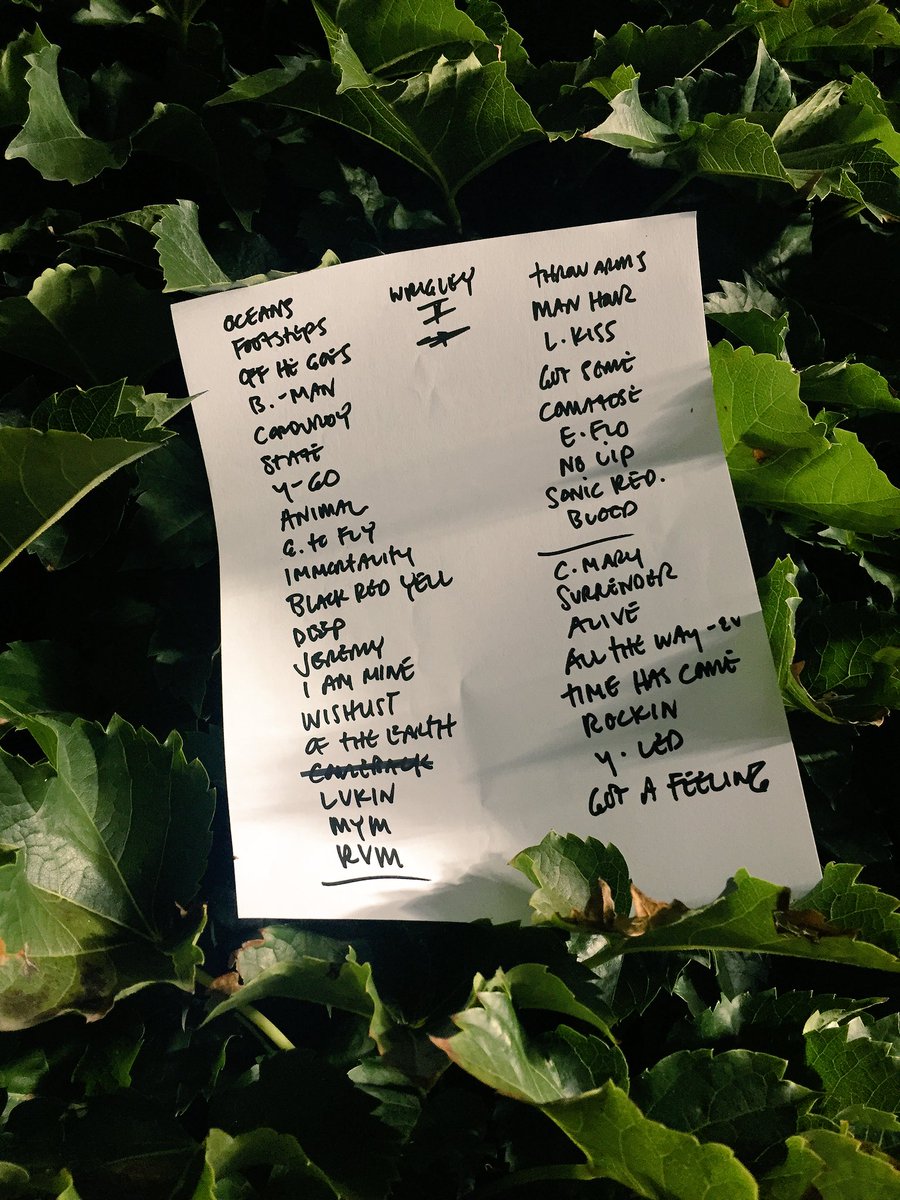 OCEANS
FOOTSTEPS
OFF HE GOES
B.-MAN
CORDUROY
STATE
Y-GO
ANIMAL
G. to FLY
IMMORTALITY
BLACK RED YELL
DEEP
JEREMY
I AM MINE
WISHLIST
OF THE EARTH
COMEBACK
LUKIN
MYM
RVM
WRIGLEY
I
THROW ARMS
MAN HOUR
L. KISS
GOT SOME
COMATOSE
E. FLO
NO WAY
SONIC RED.
BLOOD
C. MARY
SURRENDER
ALIVE
ALL THE WAY - EV
TIME HAS COME
ROCKIN
Y. LED
GOT A FEELING